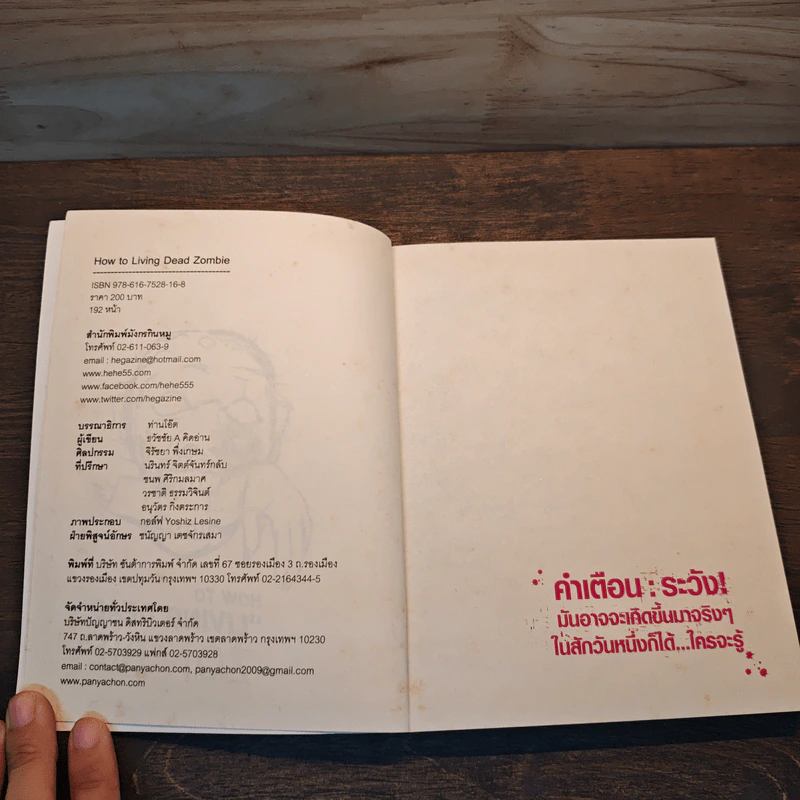 How to Living Dead Zombie
ISBN 978-616-7528-16-8
ราคา 200 บาท
192 หน้า
สำนักพิมพ์มังกรกินหมู
โทรศัพท์ 02-611-063-9
email : hegazine@hotmail.com
www.hehe55.com
www.facebook.com/hehe555
www.twitter.com/hegazine
บรรณาธิการ ท่านโอ๊ต
ผู้เขียน ธวัชชัย A คิดอ่าน
ศิลปกรรม จิรัชยา พึ่งเกษม
ที่ปรึกษา นรินทร์ จิตต์จันทร์กลับ
ชนพ ศิริกมลมาศ
วรชาติ ธรรมวิจินต์
อนุวัตร กิ่งตระการ
ภาพประกอบ กอล์ฟ Yoshiz Lesine
ฝ่ายพิสูจน์อักษร ชนัญญา เตชจักรเสมา
พิมพ์ที่ บริษัท ซันต้าการพิมพ์ จำกัด เลขที่ 67 ซอยรองเมือง 3 ถ.รองเมือง
แขวงรองเมือง เขตปทุมวัน กรุงเทพฯ 10330 โทรศัพท์ 02-2164344-5
จัดจำหน่ายทั่วประเทศโดย
บริษัทปัญญาชน ดิสทริบิวเตอร์ จำกัด
747 ถ.ลาดพร้าว-วังหิน แขวงลาดพร้าว เขตลาดพร้าว กรุงเทพฯ 10230
โทรศัพท์ 02-5703929 แฟกส์ 02-5703928
email : contact@panyachon.com, panyachon2009@gmail.com
www.panyachon.com
คำเตือน : ระวัง!
มันอาจจะเกิดขึ้นมาจริงๆ
ในสักวันหนึ่งก็ได้...ใครจะรู้